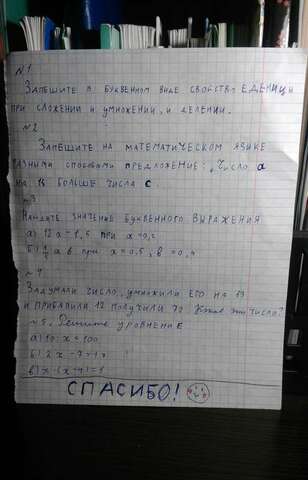 №1
Запешите в буквенном виде свойство еденицы
при сложении и умножении, и делении.
№2
Запешите на математическом языке
разными способами предложение: "число a
на 18 больше числа c.
№3
Наидите значение буквенного выражения
а) 12a-1,5 при a=0,2
при x=0,5, в=0,4
№4
Задумали число, умножили его на 19
и прибавили 12 получили 70 Какое это число?
№5. Решите уровнение
а) 10:x=100
б) 2x-7=
в) x
СПАСИБО!